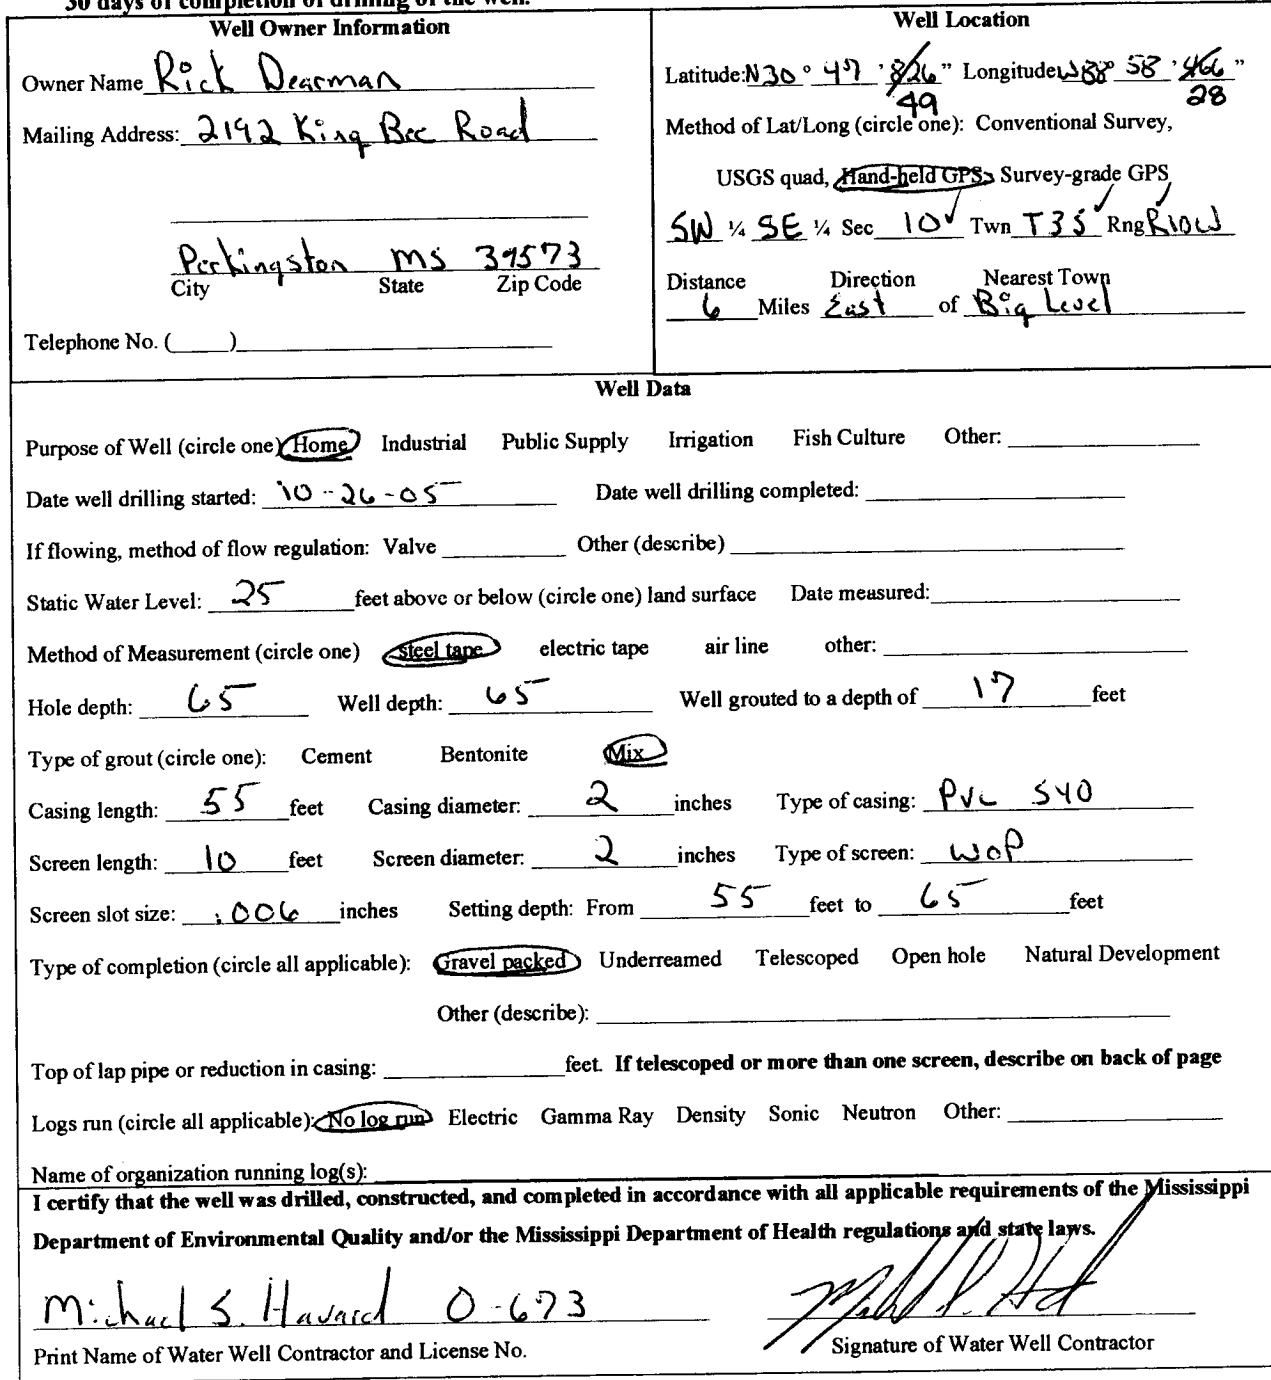 30 days of completion of drilling of the well.
Well Owner Information
Owner Name Rick Dearman
Mailing Address: 2192 King Bee Road
Perkingston MS 39573
City State Zip Code
Telephone No. (____)
Well Location
Latitude: N30° 47 ' 826 " Longitude W88° 58 ' 466 "
49 28
Method of Lat/Long (circle one): Conventional Survey,
USGS quad, Hand-held GPS, Survey-grade GPS
SW ¼ SE ¼ Sec 10 Twn T3S Rng R10W
Distance Direction Nearest Town
6 Miles East of Big Level
Well Data
Purpose of Well (circle one) Home Industrial Public Supply Irrigation Fish Culture Other:
Date well drilling started: 10-26-05 Date well drilling completed:
If flowing, method of flow regulation: Valve Other (describe)
Static Water Level: 25 feet above or below (circle one) land surface Date measured:
Method of Measurement (circle one) steel tape electric tape air line other:
Hole depth: 65 Well depth: 65 Well grouted to a depth of 17 feet
Type of grout (circle one): Cement Bentonite Mix
Casing length: 55 feet Casing diameter: 2 inches Type of casing: PVC S40
Screen length: 10 feet Screen diameter: 2 inches Type of screen: WOP
Screen slot size: .006 inches Setting depth: From 55 feet to 65 feet
Type of completion (circle all applicable): Gravel packed Underreamed Telescoped Open hole Natural Development
Other (describe):
Top of lap pipe or reduction in casing: feet. If telescoped or more than one screen, describe on back of page
Logs run (circle all applicable): No log run Electric Gamma Ray Density Sonic Neutron Other:
Name of organization running log(s):
I certify that the well was drilled, constructed, and completed in accordance with all applicable requirements of the Mississippi
Department of Environmental Quality and/or the Mississippi Department of Health regulations and state laws.
Michael S. Havard 0-673
Print Name of Water Well Contractor and License No.
Signature of Water Well Contractor